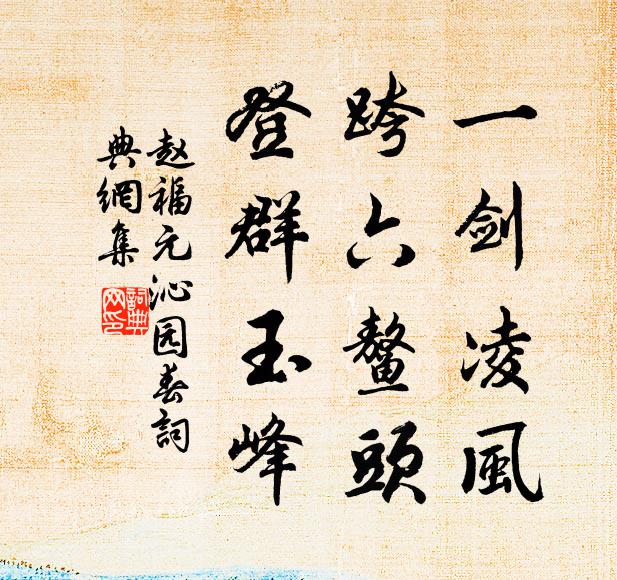 一剑凌風
跨六鳌頭
登群玉峰
赵福元沁园春詞
典網集
詞典网印